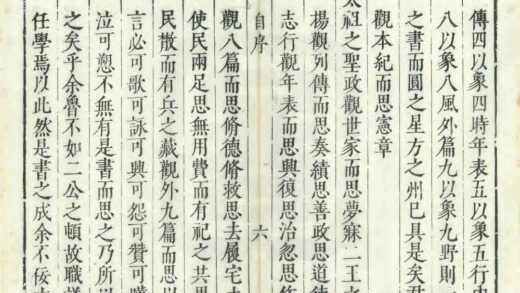 傳四以象四時年表五以象五行
八以象八風外篇九以象九野則
之書而圓之星方之州巳具是矣君
觀本紀而思憲章
太祖之聖政觀世家而思夢寐二王之
揚觀列傳而思奏績思善政思道
志行觀年表而思興復思治忽思
自序 六
觀八篇而思脩德脩救思去履宅
使民兩足思無用費而有祀之共思
民散而有兵之藏觀外九篇而思以
言必可歌可詠可興可怨可贊可
泣可愬不無有是書而思之乃所
之矣乎余魯不如二公之頓故職
任學焉以此然是書之成余不佞